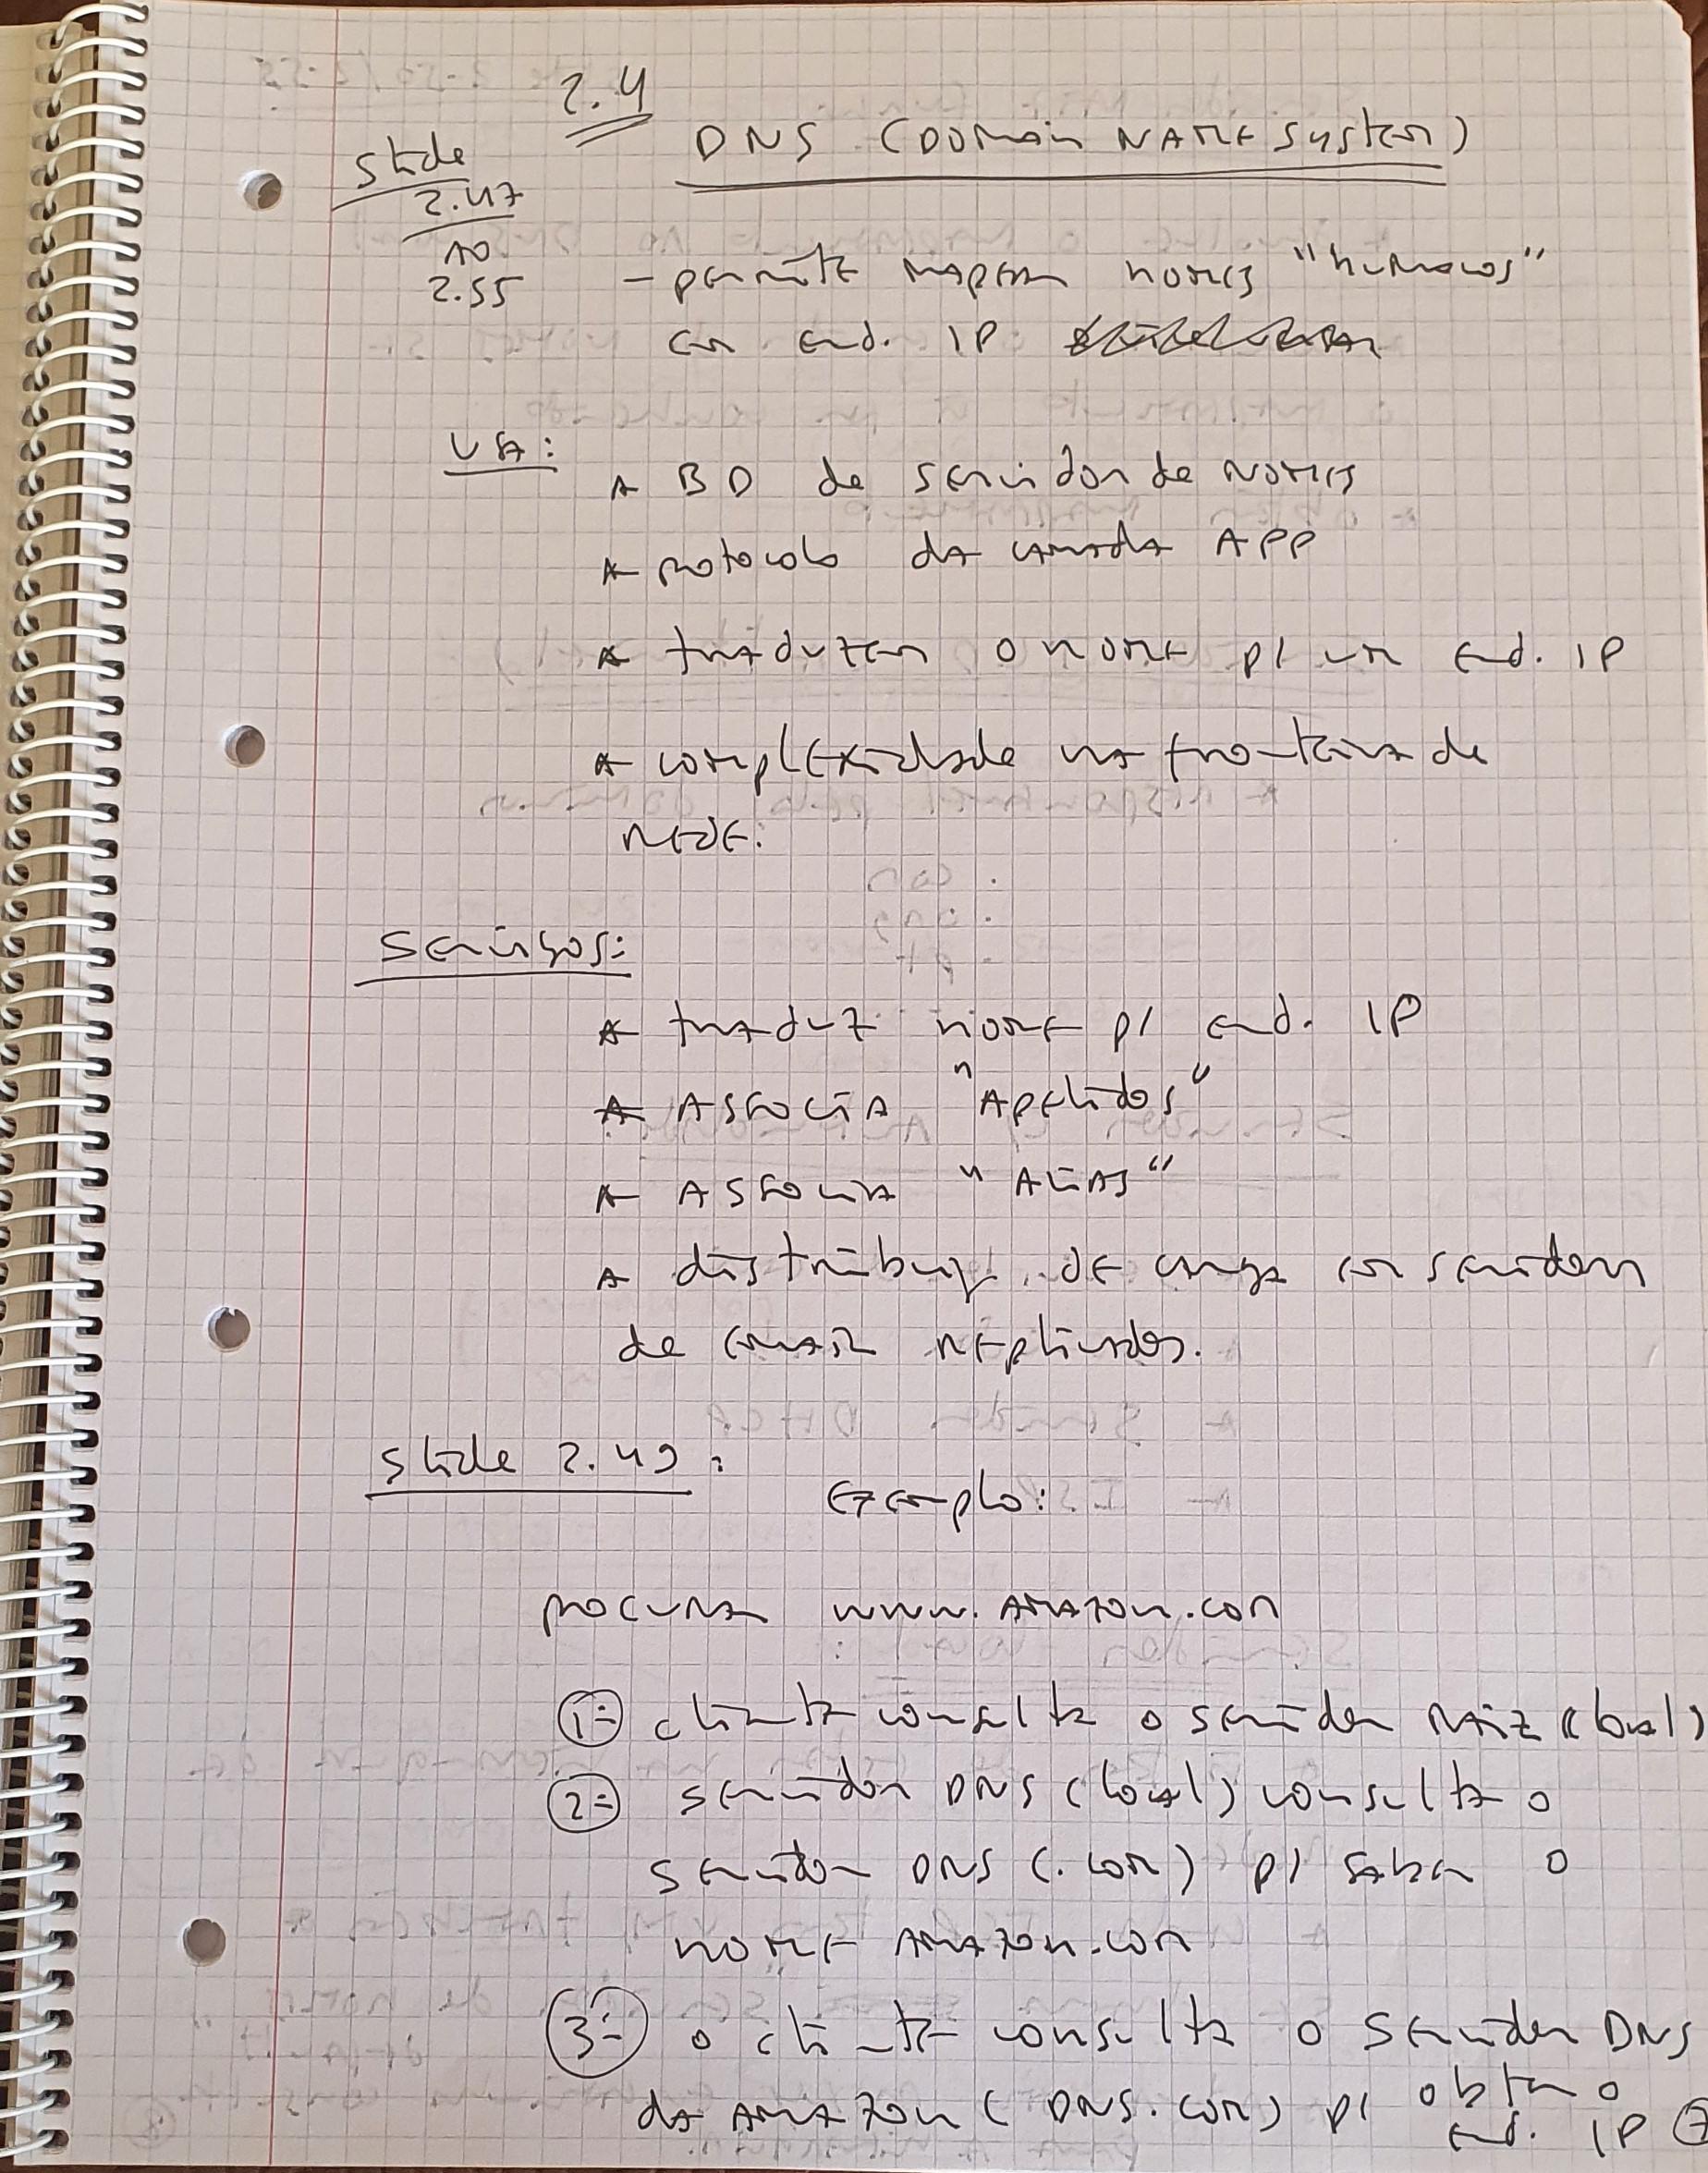 2.4
DNS (Domain Name System)
Slide
2.47
ao
2.55
- permite mapear nomes "humanos"
em end. IP
usa:
* BD de servidor de nomes
* protocolo da camada APP
* traduzem o nome p/ um end. IP
* complexidade na fronteira de
rede.
Serviços:
* traduz nome p/ end. IP
* Associa "Apelidos"
* Associa "Alias"
* distribuiç. de carga em servidores
de email replicados.
Slide 2.49:
Exemplo:
procura www.amazon.com
1- cliente consulta o servidor raiz (local)
2- servidor DNS (local) consulta o
servidor DNS (.com) p/ saber o
nome amazon.com
3- o cliente consulta o servidor DNS
da amazon (DNS.com) p/ obter o
end. IP 7